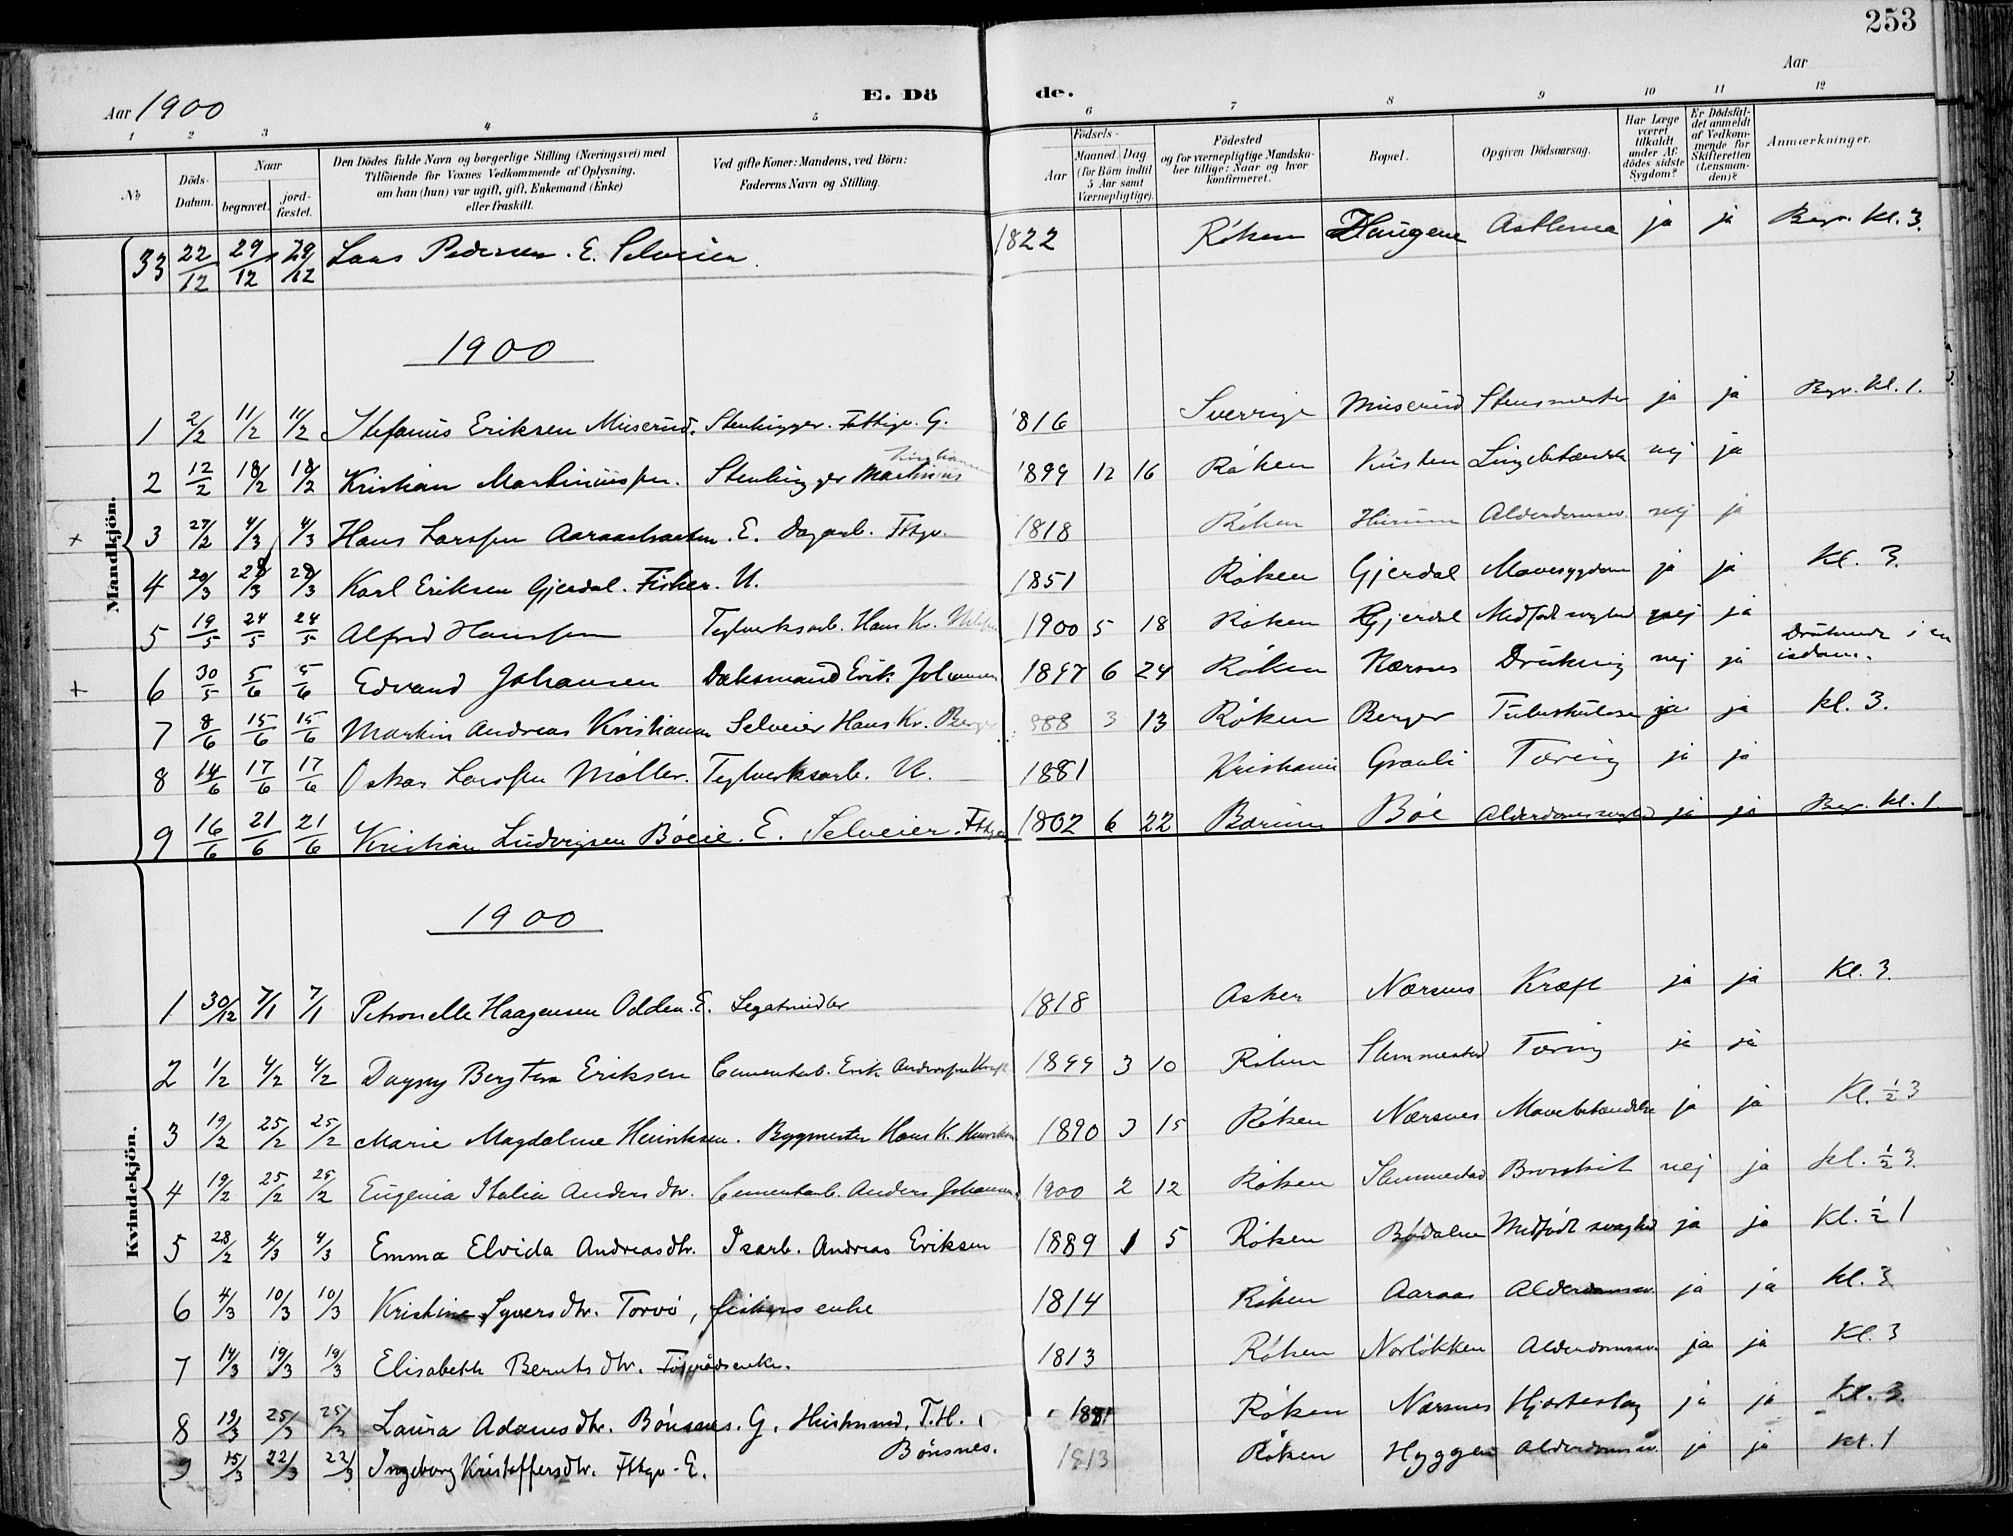 253
Aar 1900 E. Dö de. Aar
1 2 3 4 5 6 7 8 9 10 11 12
No
Döds-Datum.
Naar
begravet.
jord-fæstet.
Den Dödes fulde Navn og borgerlige Stilling (Næringsvei) med
Tilföiende for Voxnes Vedkommende af Oplysning,
om han (hun) var ugift, gift, Enkemand (Enke)
eller fraskilt.
Ved gifte Koner: Mandens, ved Börn:
Faderens Navn og Stilling.
Födsels-
Aar
Maaned. Dag.
(for Börn indtil
5 Aar samt
Værnepligtige).
Födested
og for værnepligtige Mandska-
ber tillige: Naar og hvor
konfirmeret.
Bopæl.
Opgiven Dödsaarsag.
Har Læge
været
tilkaldt
under Af-
dödes sidste
Sygdom?
Er Dödsfal-
det anmeldt
af Vedkom-
mende for
Skifteretten
(Lensman-
den)?
Anmærkninger.
Mandkjön.
33 22/12 29/12 29/12 Lars Pedersen. E. Selveier. 1822 Röken Haugene Asthma ja ja Begr. Kl. 3.
1900
1 2/2 11/2 11/2 Stefanus Eriksen Muserud. Stenhugger. Fattigv. G. 1816 Sverrige Muserud Stensmerter ja ja Begr. Kl. 1.
2 12/2 18/2 18/2 Kristian Martiniussen. Stenhugger Martinius 1899 12 16 Röken Lungebetændelse nej ja
+ 3 27/2 4/3 4/3 Hans Larssen . E. Dagarb. Fttgv. 1818 Röken Hurum Alderdomssv. nej ja
4 20/3 28/3 28/3 Karl Eriksen Gjerdal. Fisker. U. 1851 Röken Gjerdal Mavesygdom ja ja Kl. 3.
5 19/5 24/5 24/5 Alfred Hanssen Teglverksarb. Hans Kr. 1900 5 18 Röken Gjerdal Medfödt svaghed nej ja
+ 6 30/5 5/6 5/6 Edvard Johansen Dæksmand Erik Johansen 1897 6 24 Röken Nærsnes Drukning nej ja Druknede i en isdam.
7 8/6 15/6 15/6 Martin Andreas Kristiansen Selveier Hans Kr. Berger 888 3 13 Röken Berger Tuberkulose ja ja Kl. 3.
8 14/6 17/6 17/6 Oskar Larssen Möller. Teglverksarb. U. 1881 Kristiania Grauli Tæring ja ja
9 16/6 21/6 21/6 Kristian Ludvigsen Böeie. E. Selveier. Fttgv 1802 6 22 Bærum Böe Alderdomssvaghed ja ja Begr. Kl. 1
Kvindekjön.
1900
1 30/12 7/1 7/1 Petronelle Haagensen Odden. E. Legatnidler 1818 Asker Nærsnes Kræft ja ja Kl. 3.
2 1/2 4/2 4/2 Dagny Eriksen Cementarb. Erik 1899 3 10 Röken Slemmestad Tæring ja ja
3 19/2 25/2 25/2 Marie Magdalene Henriksen. Bygmester Hans K. Henriksen 1890 3 15 Röken Nærsnes Mavebetændelse ja ja Kl. ½ 3
4 19/2 25/2 25/2 Eugenia Italia Andersdtr. Cementarb. Anders Johansen 1900 2 12 Röken Slemmestad Bronkit nej ja Kl. ½ 3.
5 28/2 4/3 4/3 Emma Elvida Andreasdtr. Isarb. Andreas Eriksen 1889 1 5 Röken Bödalen Medfödt svaghed ja ja Kl. ½ 1
6 4/3 10/3 10/3 Kristine Syversdtr. Torvö, fiskers enke 1814 Röken Aaraas Alderdomssv. ja ja Kl. 3
7 14/3 19/3 19/3 Elisabeth Berntsdtr. Föderådsenke. 1813 Röken Norlökken Alderdomssv. ja ja Kl. 3
8 19/3 25/3 25/3 Laura Adamsdtr. Bönsnes. G. Husmand, T.H. Bönsnes. 1881 Röken Nærsnes Hjerteslag ja ja Kl. 3.
9 15/3 22/3 22/3 Ingeborg Kristoffersdtr. Fttgv. E. 1813 Röken Hyggen Alderdomssv. ja ja Kl. 1